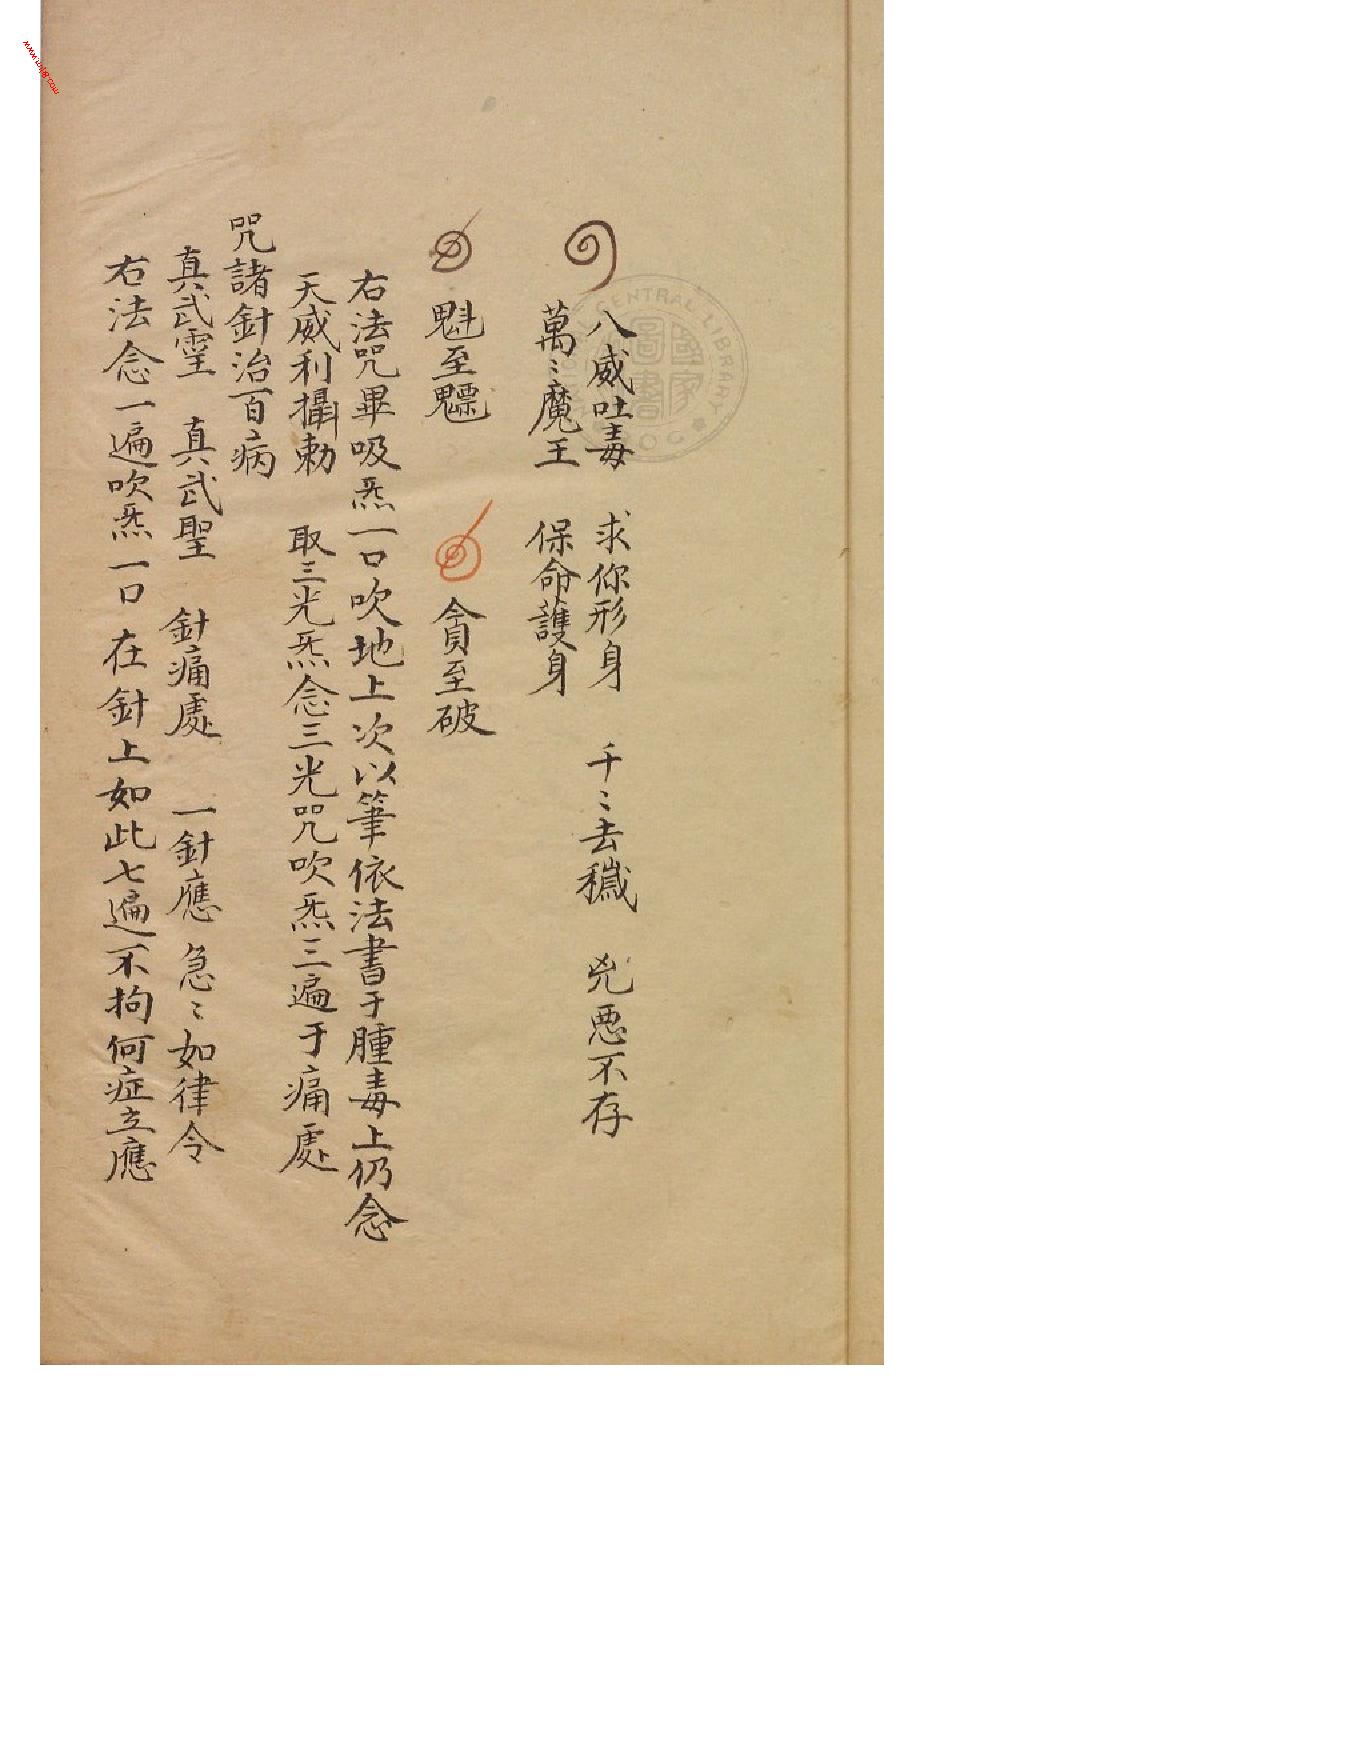 八威吐毒　求你形身　千〻去穢　兇惡不存
萬〻魔王　保命護身
魁至魒　貪至破
右法咒畢吸炁一口吹地上次以筆依法書于腫毒上仍念
天威利攝勅　取三光炁念三光咒吹炁三遍于痛處
咒諸針治百病
真武靈　真武聖　針痛處　一針應　急〻如律令
右法念一遍吹炁一口在針上如此七遍不拘何症立應
CENTRAL LIBRARY
國家圖書